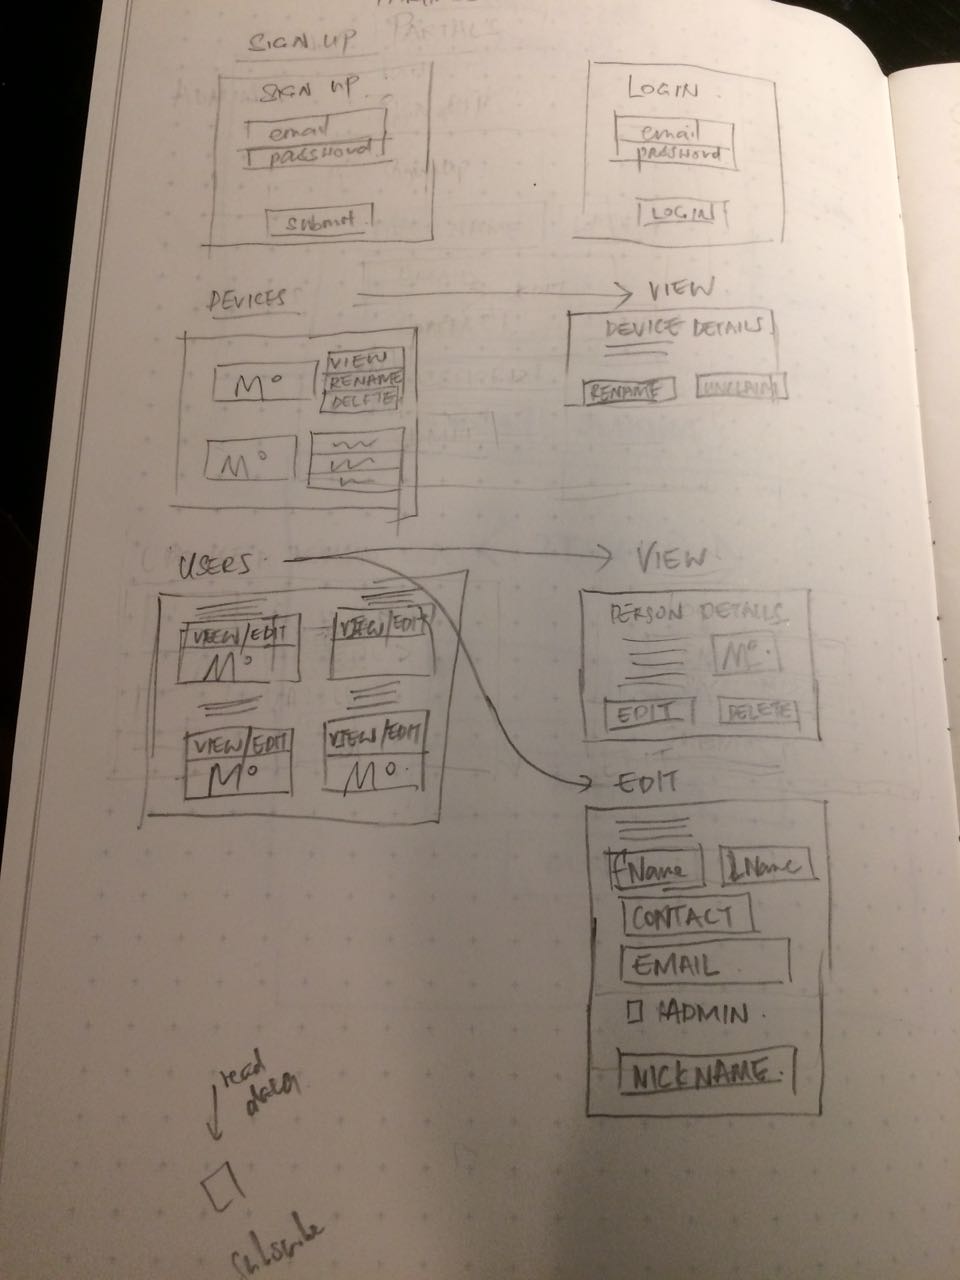 SIGN UP
SIGN UP
email
password
submit
LOGIN
email
password
LOGIN
DEVICES
VIEW
M°
VIEW
RENAME
DELETE
M°
DEVICE DETAILS
RENAME
UNCLAIM
USERS
VIEW
VIEW/EDIT
M°
VIEW/EDIT
VIEW/EDIT
M°
VIEW/EDIT
M°
PERSON DETAILS
M°
EDIT
DELETE
EDIT
fName
LName
CONTACT
EMAIL
ADMIN
NICKNAME
read
data
subscribe